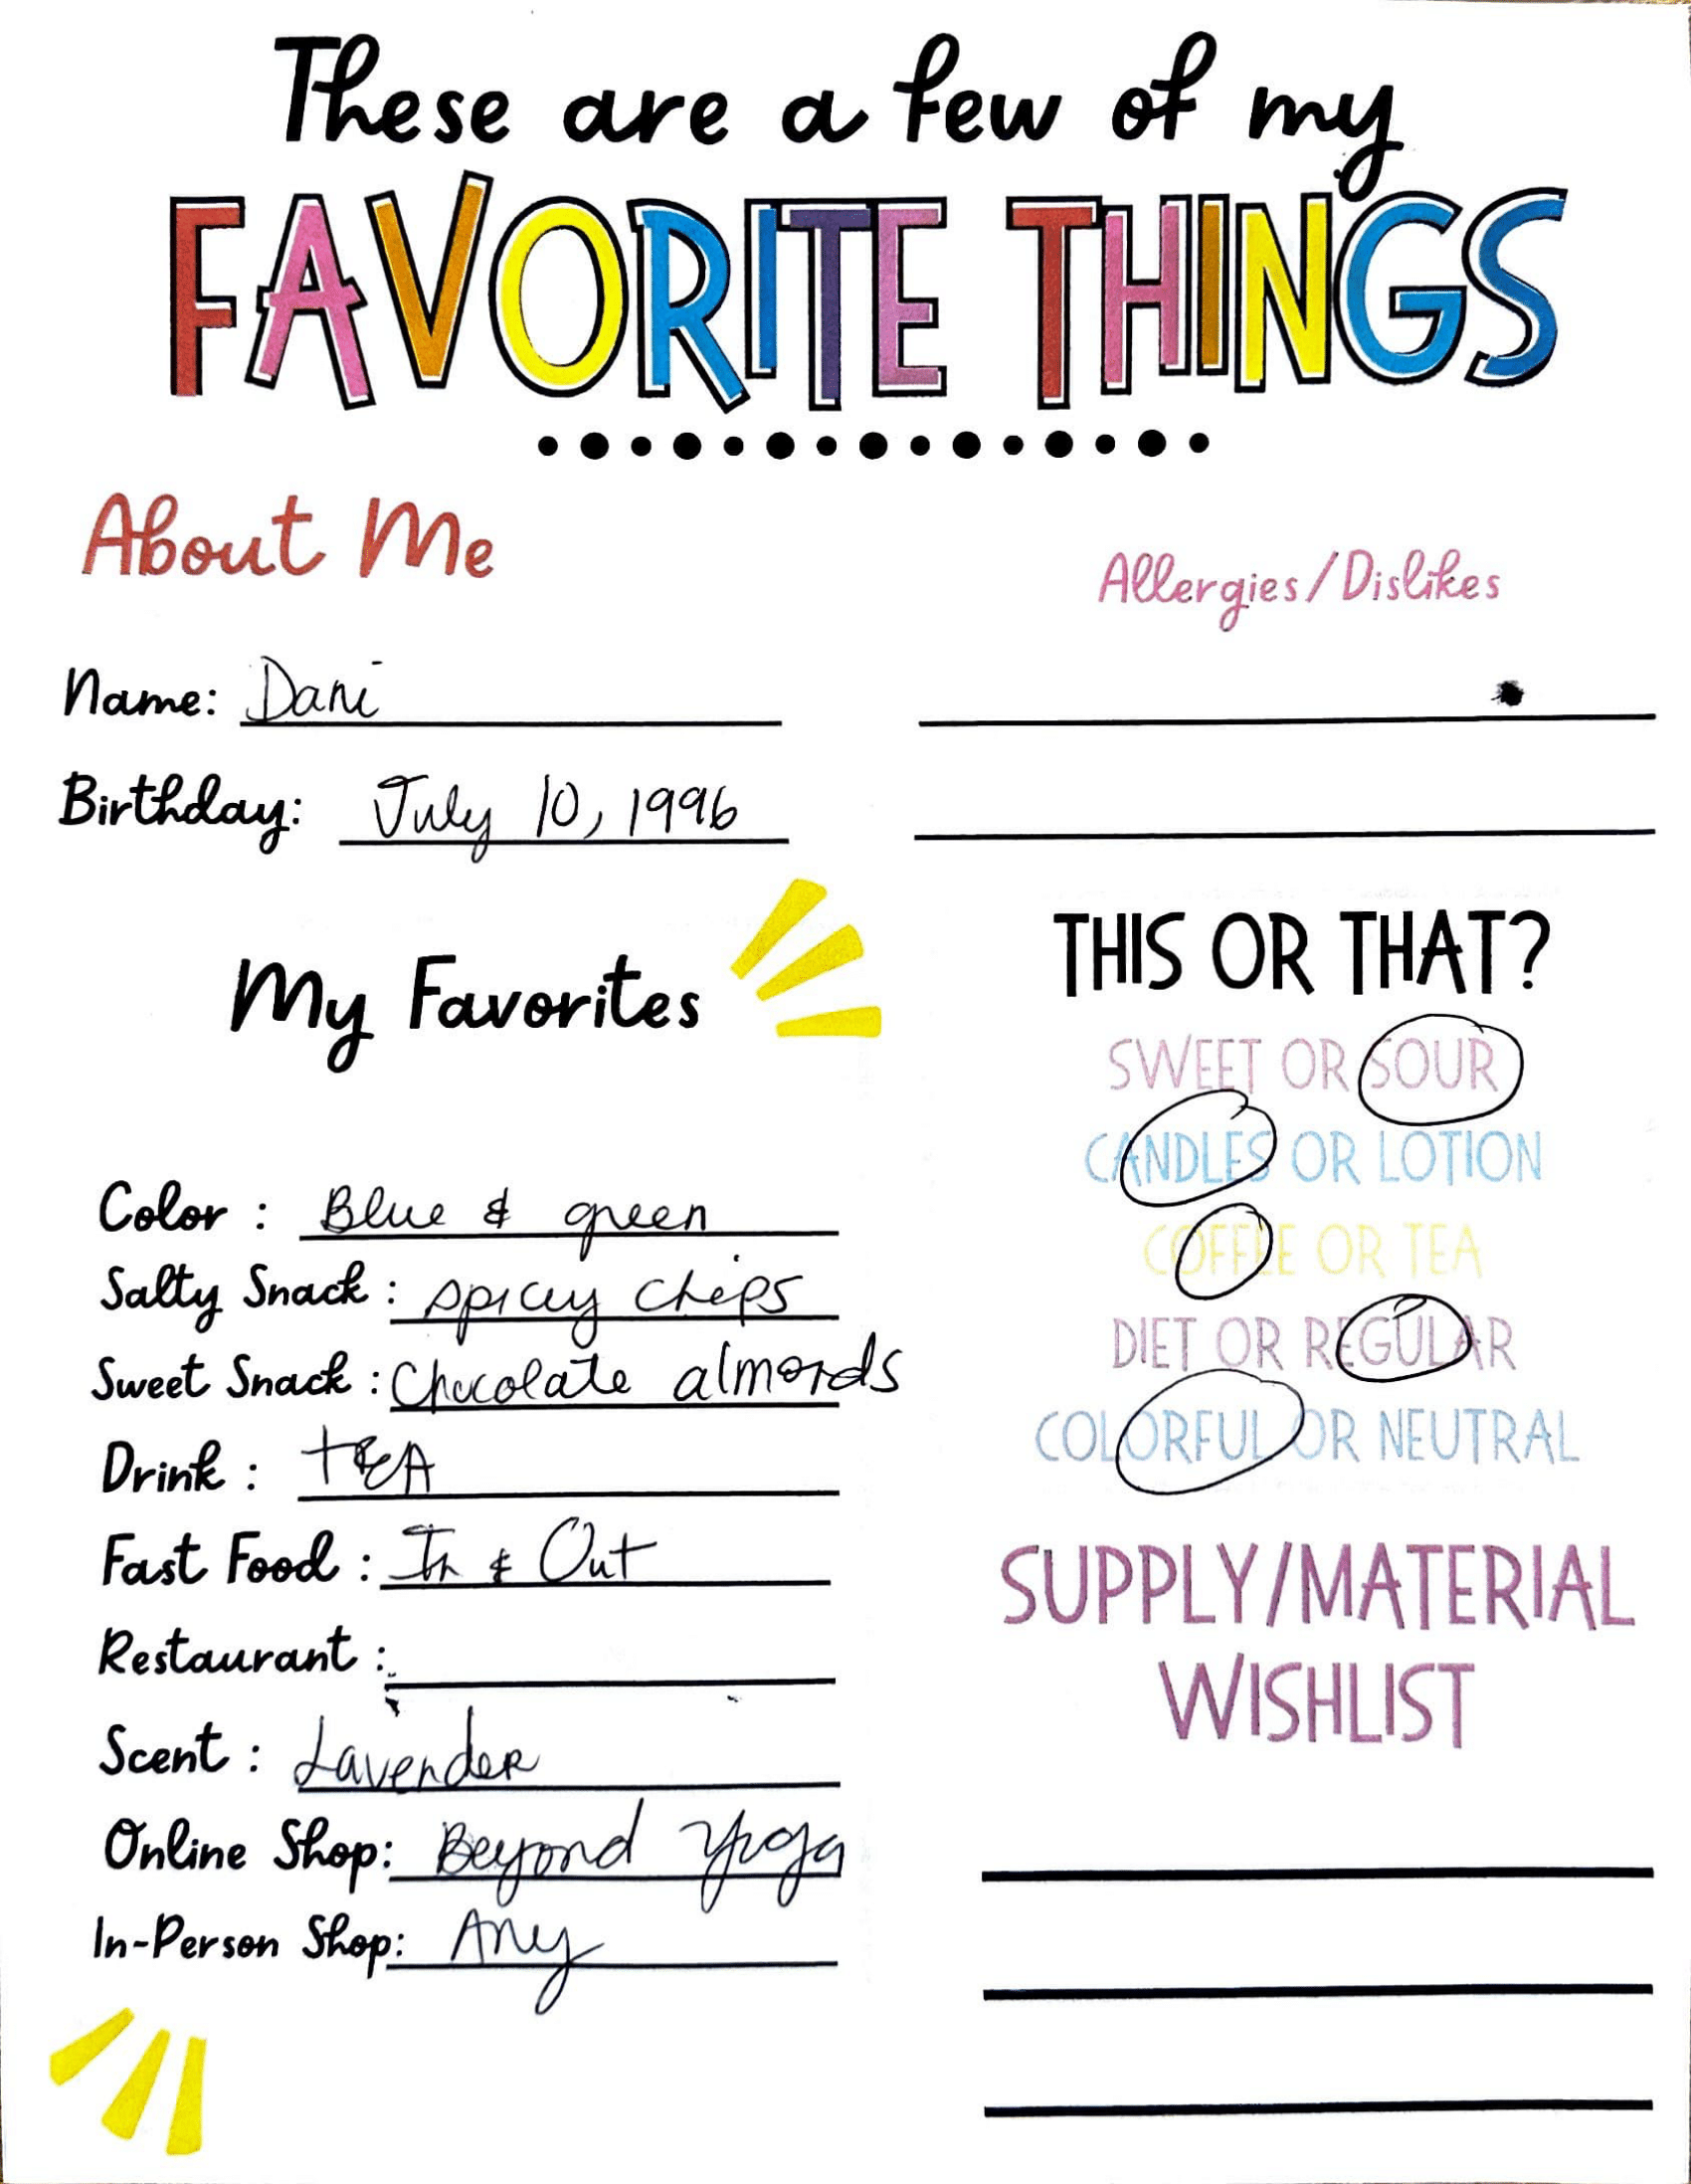 These are a few of my
FAVORITE THINGS
About Me
Allergies/Dislikes
Name: Dani
Birthday: July 10, 1996
My Favorites
Color : Blue & green
Salty Snack : spicy chips
Sweet Snack : Chocolate almonds
Drink : tEA
Fast Food : In & Out
Restaurant :
Scent : Lavender
Online Shop: Beyond Yoga
In-Person Shop: Any
THIS OR THAT?
SWEET OR SOUR
CANDLES OR LOTION
COFFEE OR TEA
DIET OR REGULAR
COLORFUL OR NEUTRAL
SUPPLY/MATERIAL
WISHLIST